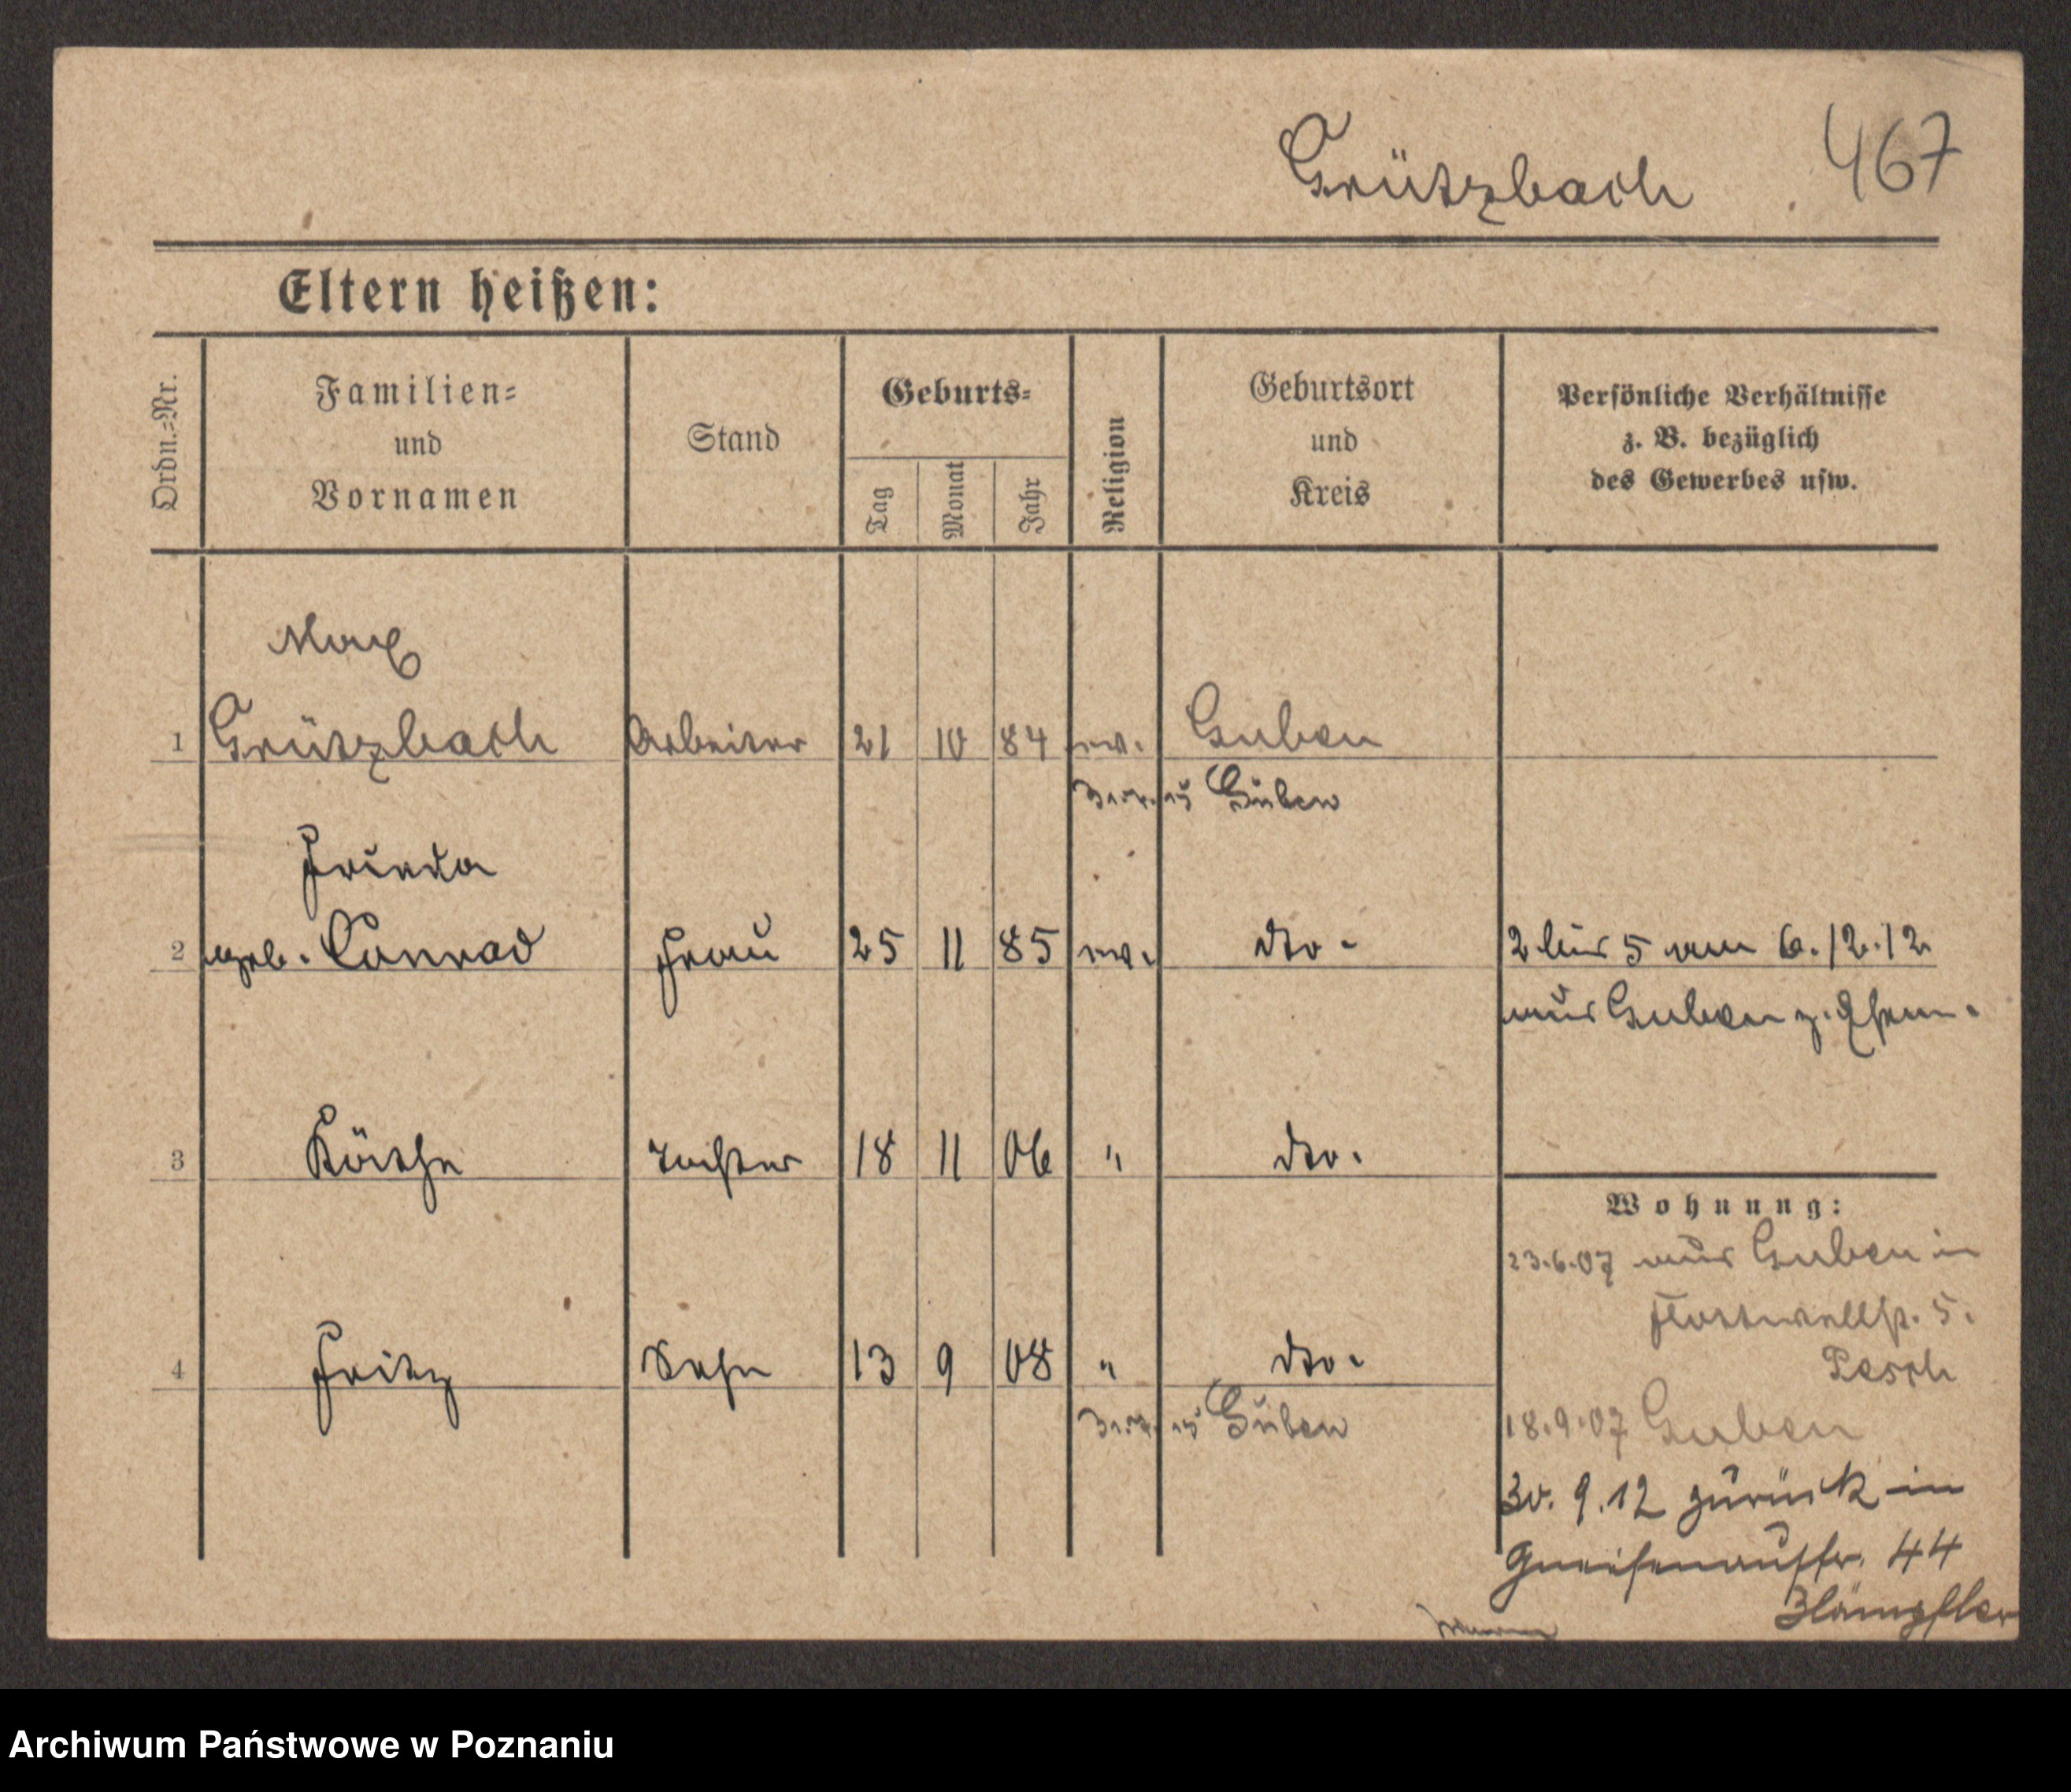 Grützbach 467
Eltern heißen:
Ordn.=Nr.
Familien=
und
Vornamen
Stand
Geburts=
Tag
Monat
Jahr
Religion
Geburtsort
und
Kreis
Persönliche Verhältnisse
z. B. bezüglich
des Gewerbes usw.
Max
1 Grützbach Arbeiter 21 10 84 ev. Guben
Guben
Frieda
2 geb. Conrad Frau 25 11 85 ev. dto - 2 bis 5 am 6.12.12
aus Guben z. Ehem.
3 Käthe Tochter 18 11 06 " dto.
Wohnung:
23.6.07 aus Guben in
Flottwellstr. 5.
4 Fritz Sohn 13 9 08 " dto.
Guben
18.9.07 Guben
30. 9. 12 zurück in
Gneisenaustr. 44
Archiwum Państwowe w Poznaniu